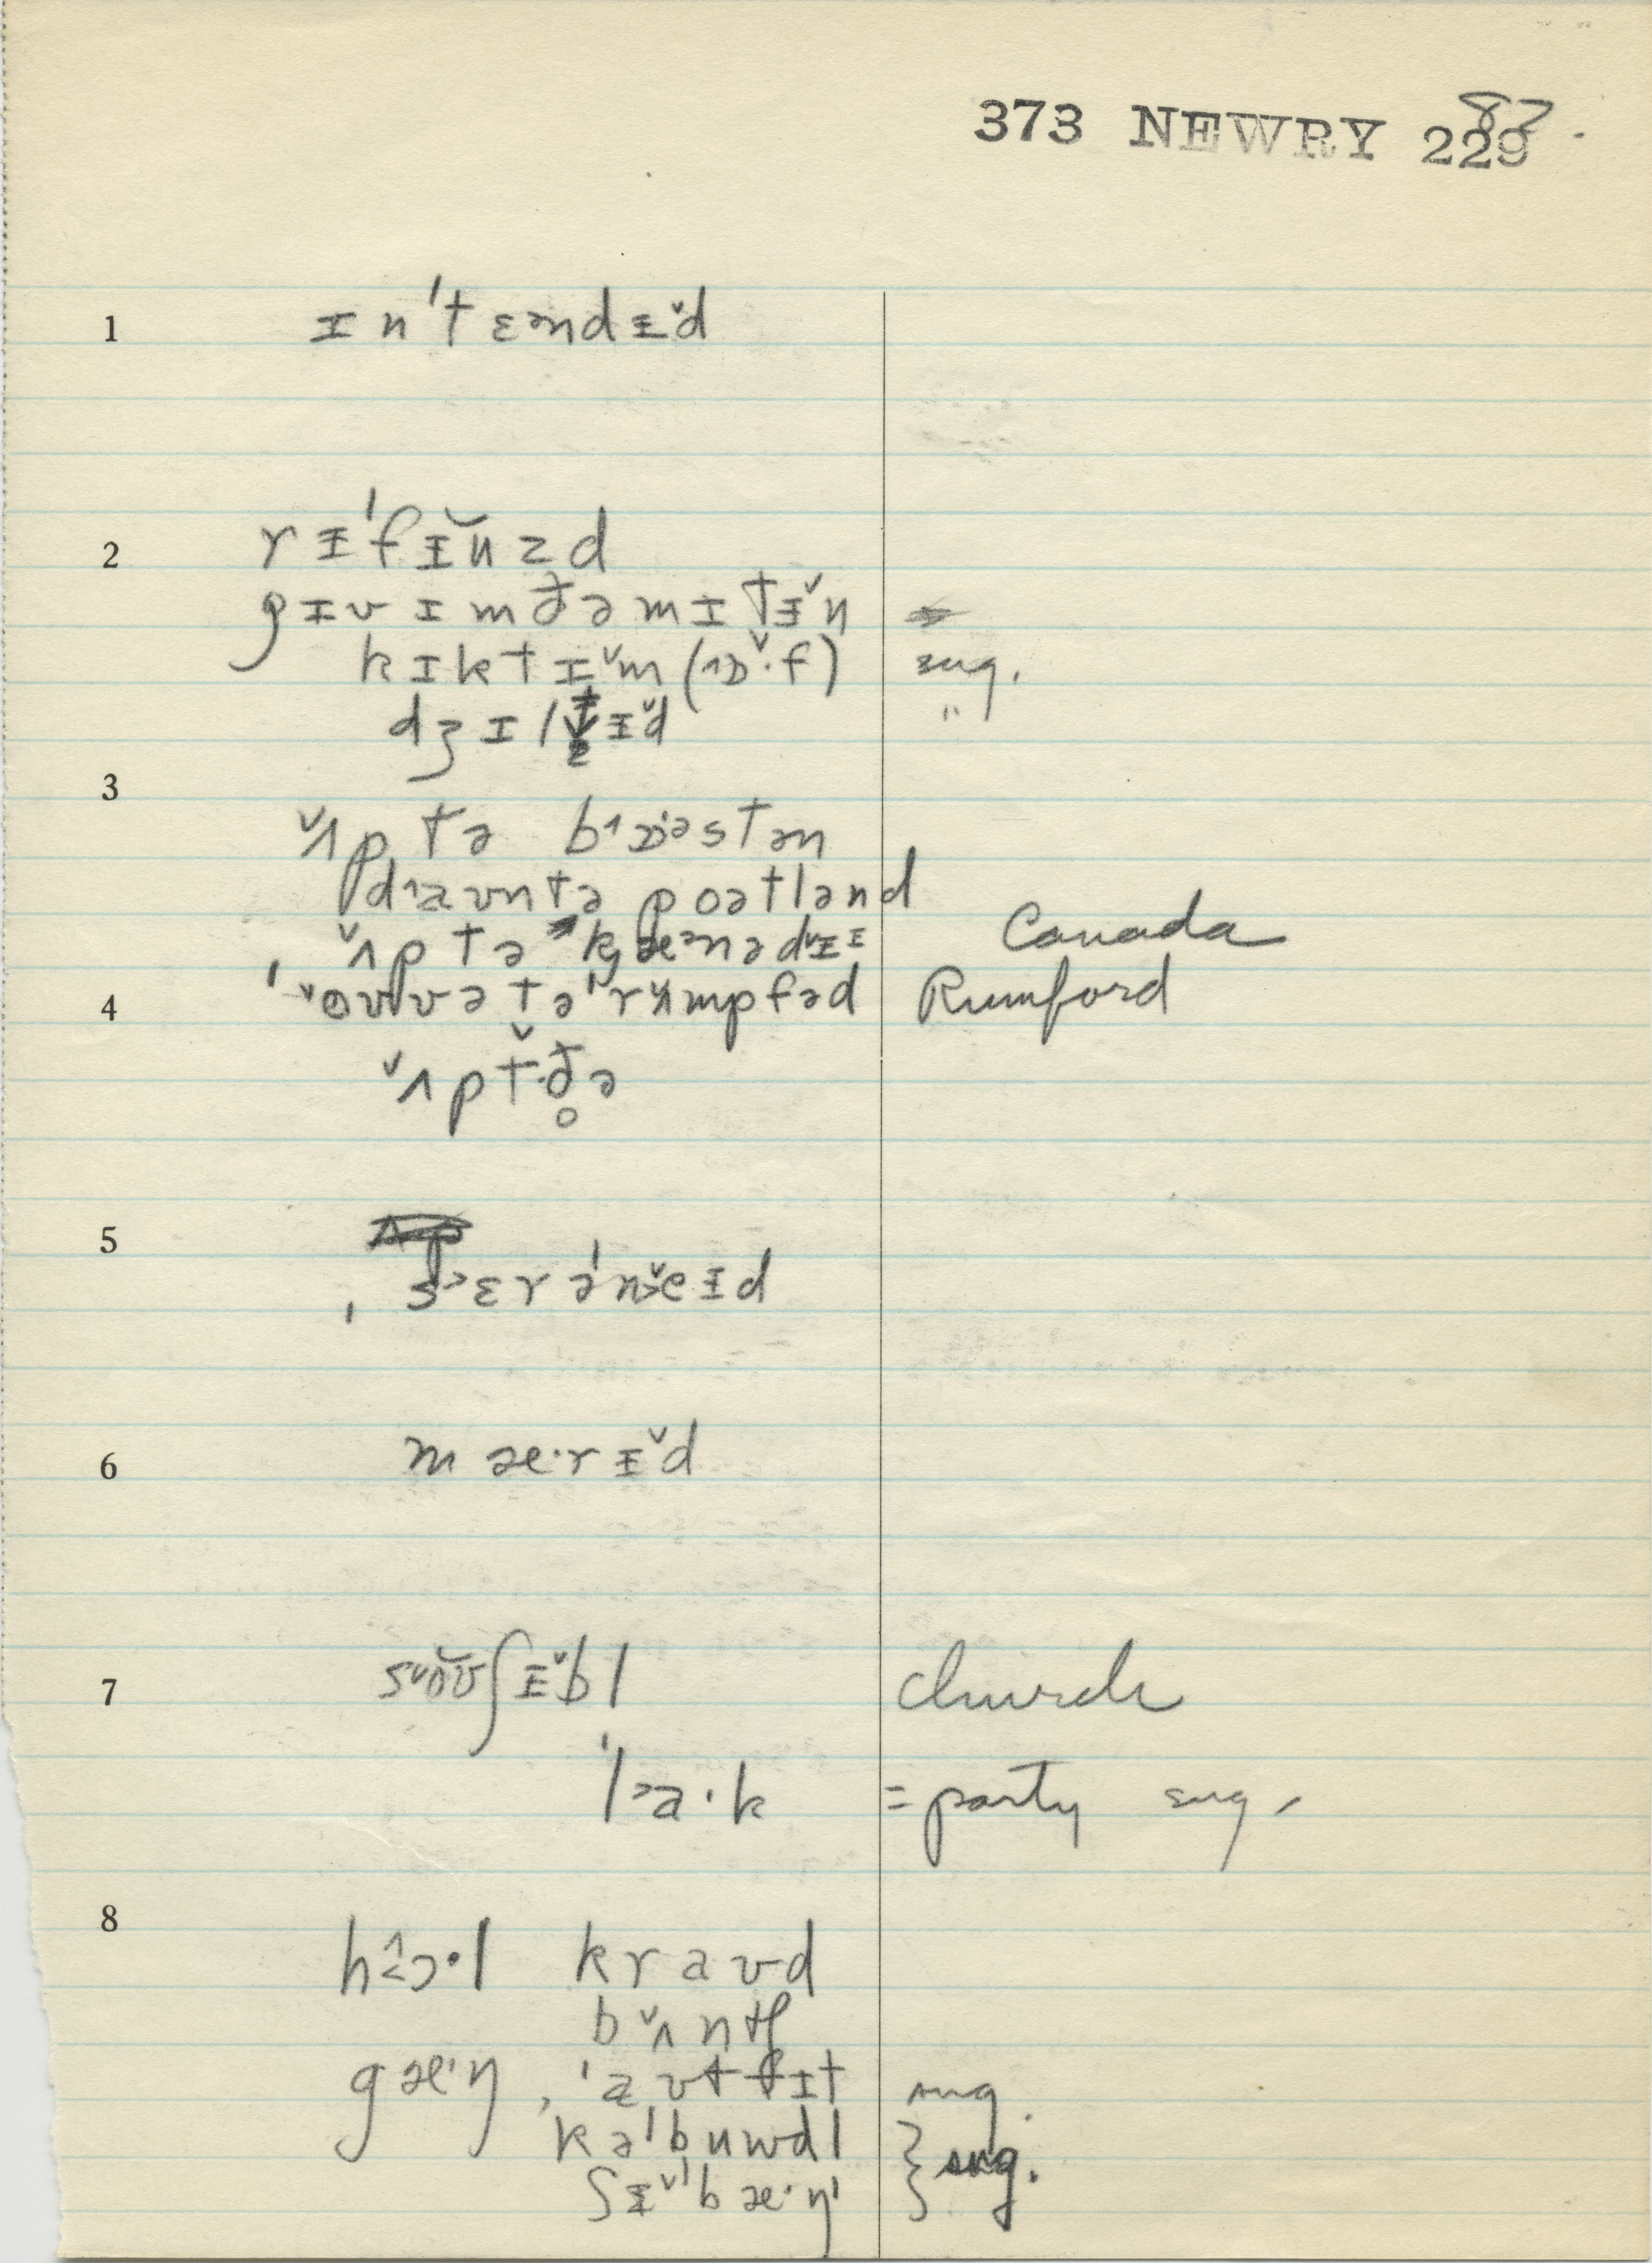 373 NEWRY 229
82.
1 ɪn ˈtɛəndɨ̌d
2 rɨˈfɪ̆ŭzd
gɪv ɪm ðə mɪtɨ̌n
kɪkt ɪ̌m (˄ɒ̌·f) sug.
dʒɪltɨ̌d "
3 ˇʌp tə b˄ɒ·əstən
d˄aʊn tə poətlənd
ˇʌp tə kænədˇɨɪ Canada
4 ˈˇoʊvə tə ˈrˇʌmpfəd Rumford
ˇʌp tˇð̥ə
5 ˌʃ˃ɛrəˈnˇeɨd
6 mæ·rɨ̌d
7 sˇoʊ̆ʃɨ̌bl church
ˈl˃a·k = party sug.
8 h˂ɔ·l kraʊd
bˇʌntʃ
gæ·ŋ, ˈaʊtfɪt sug.
kəˈbuwdl } sug.
ʃɨ̌ˈbæ·ŋ